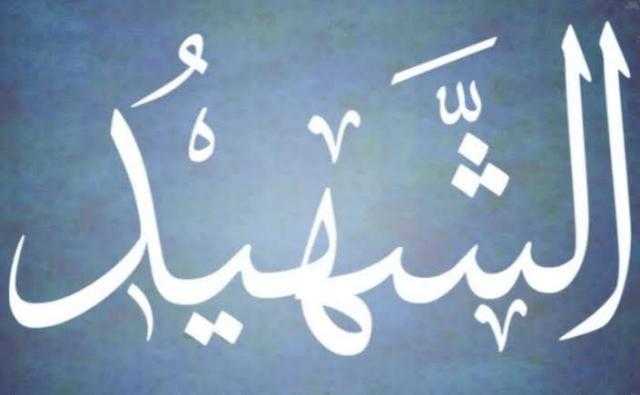 الشَّهِيْدُ